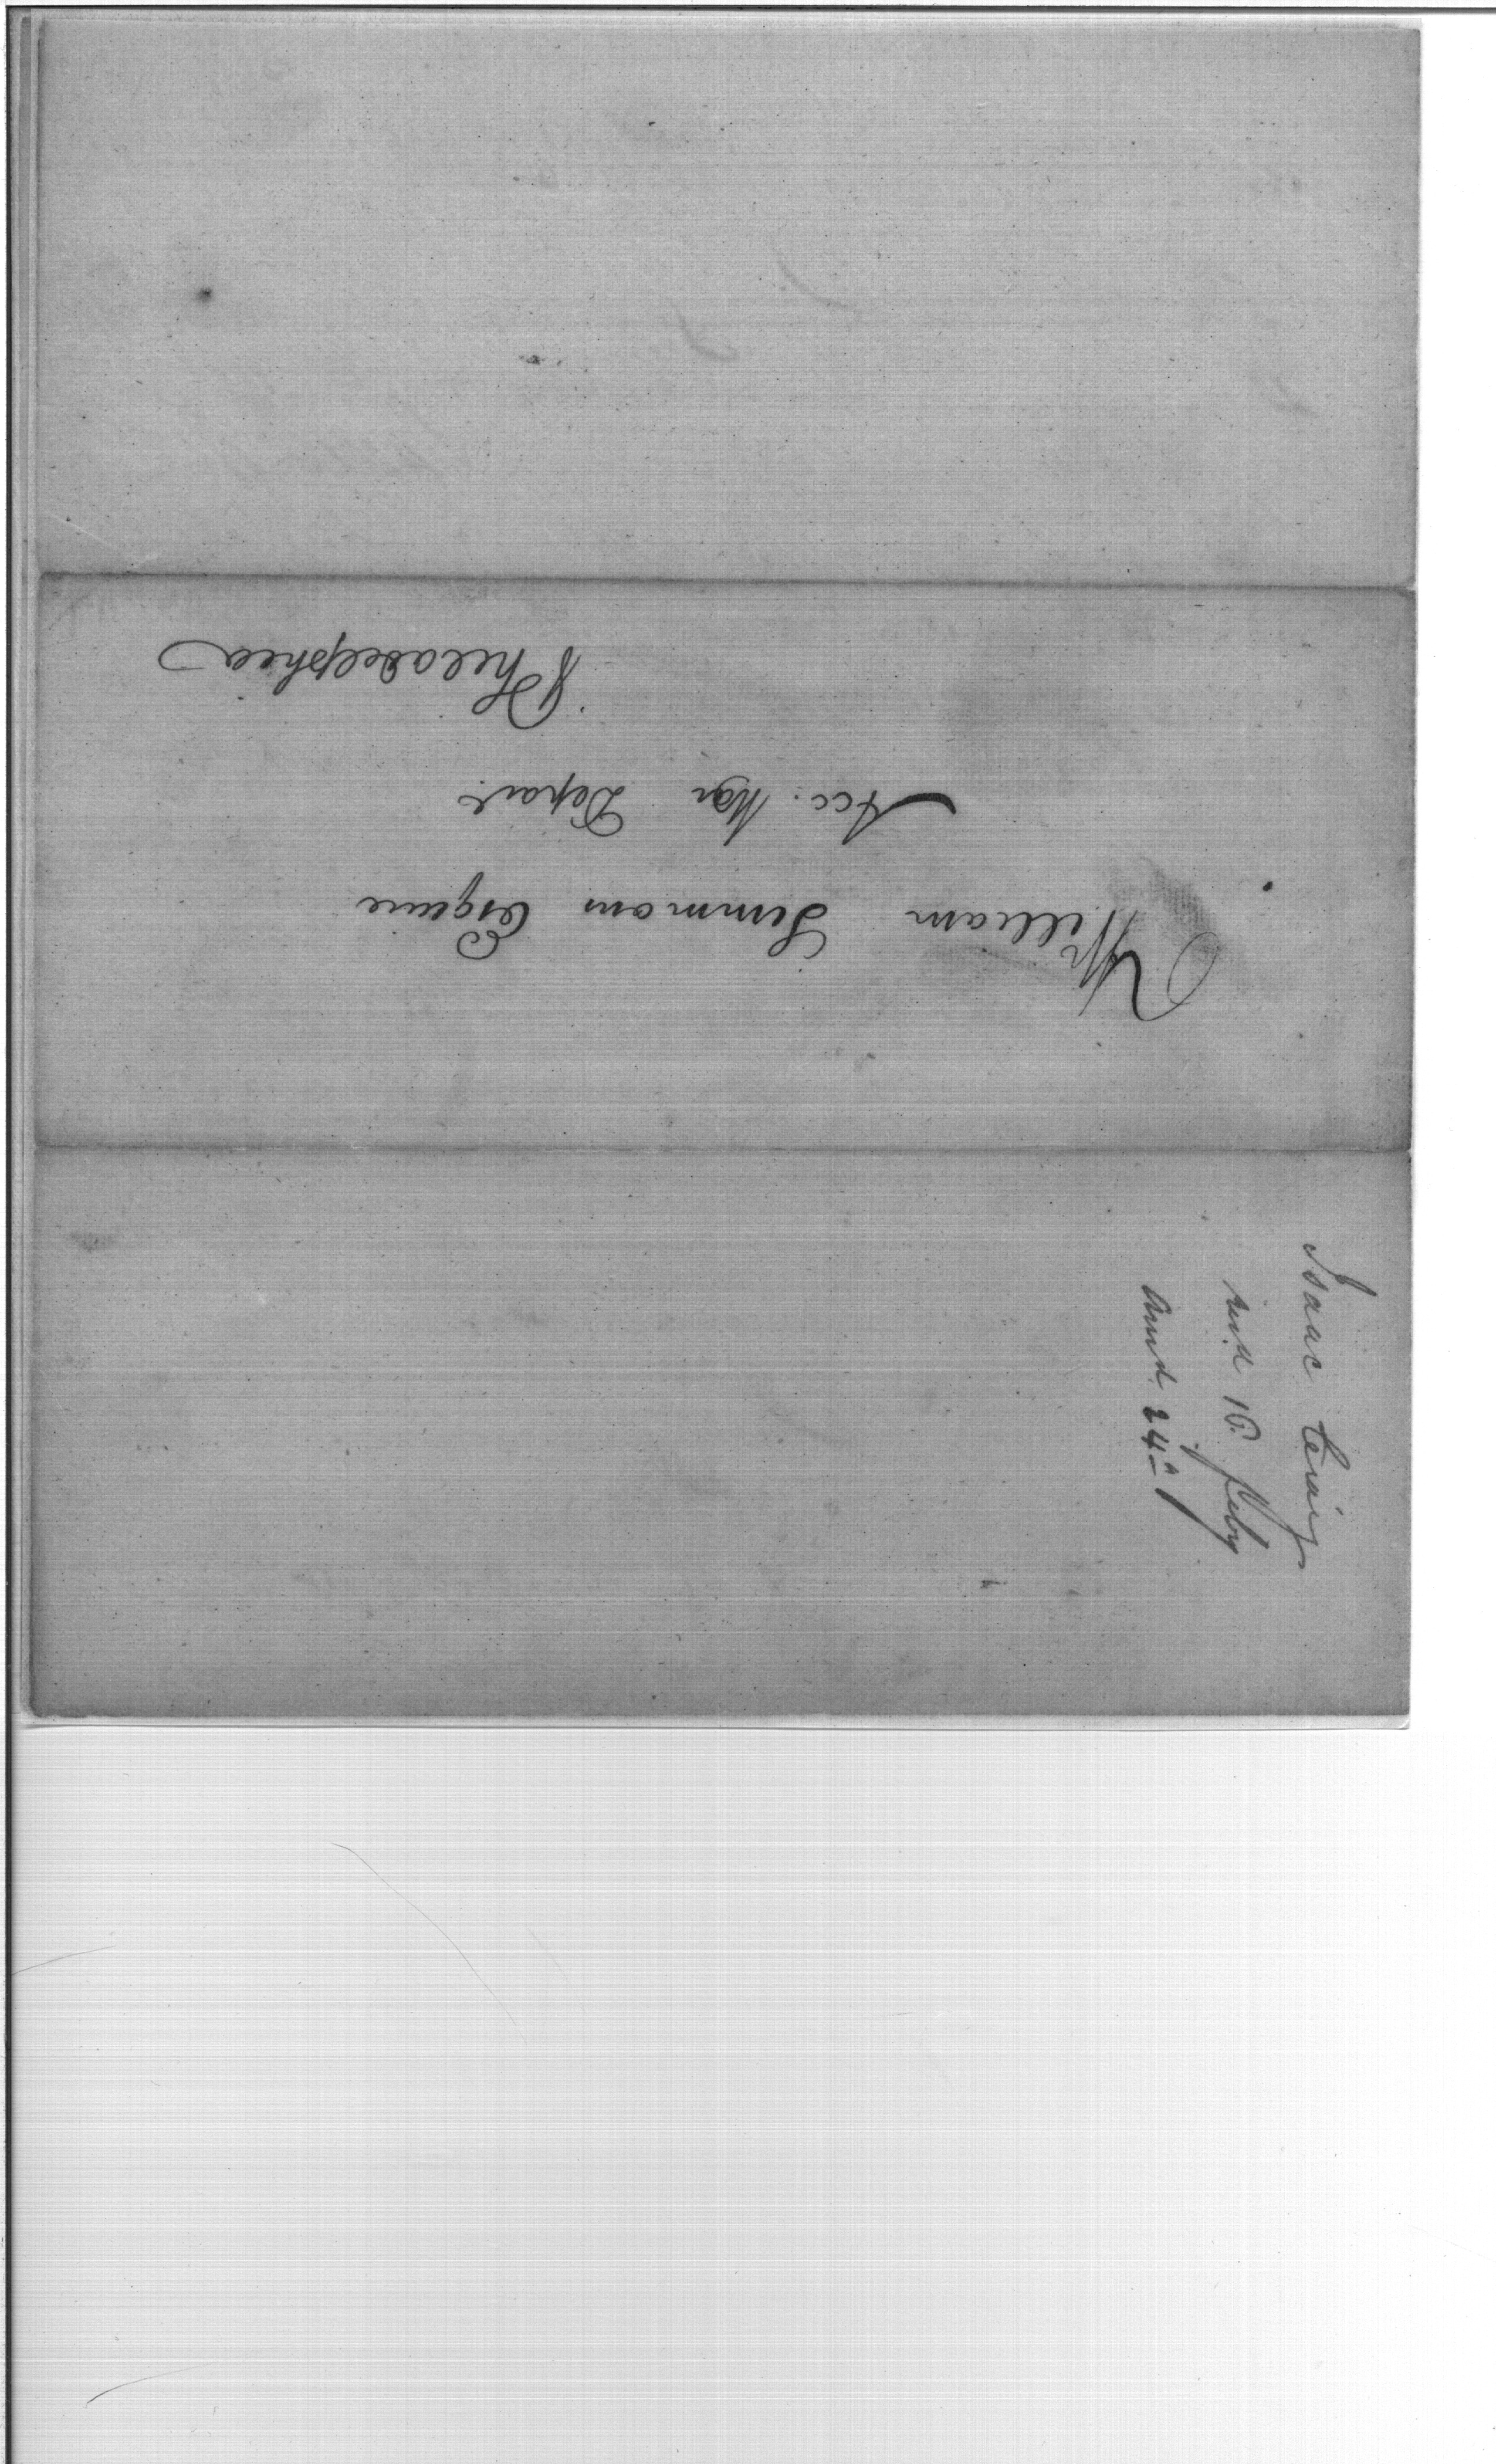 William Simmons Esquire
Acc. War Depart
Philadelphia
Isaac Craig
recd 16 Feby
Answd 24th